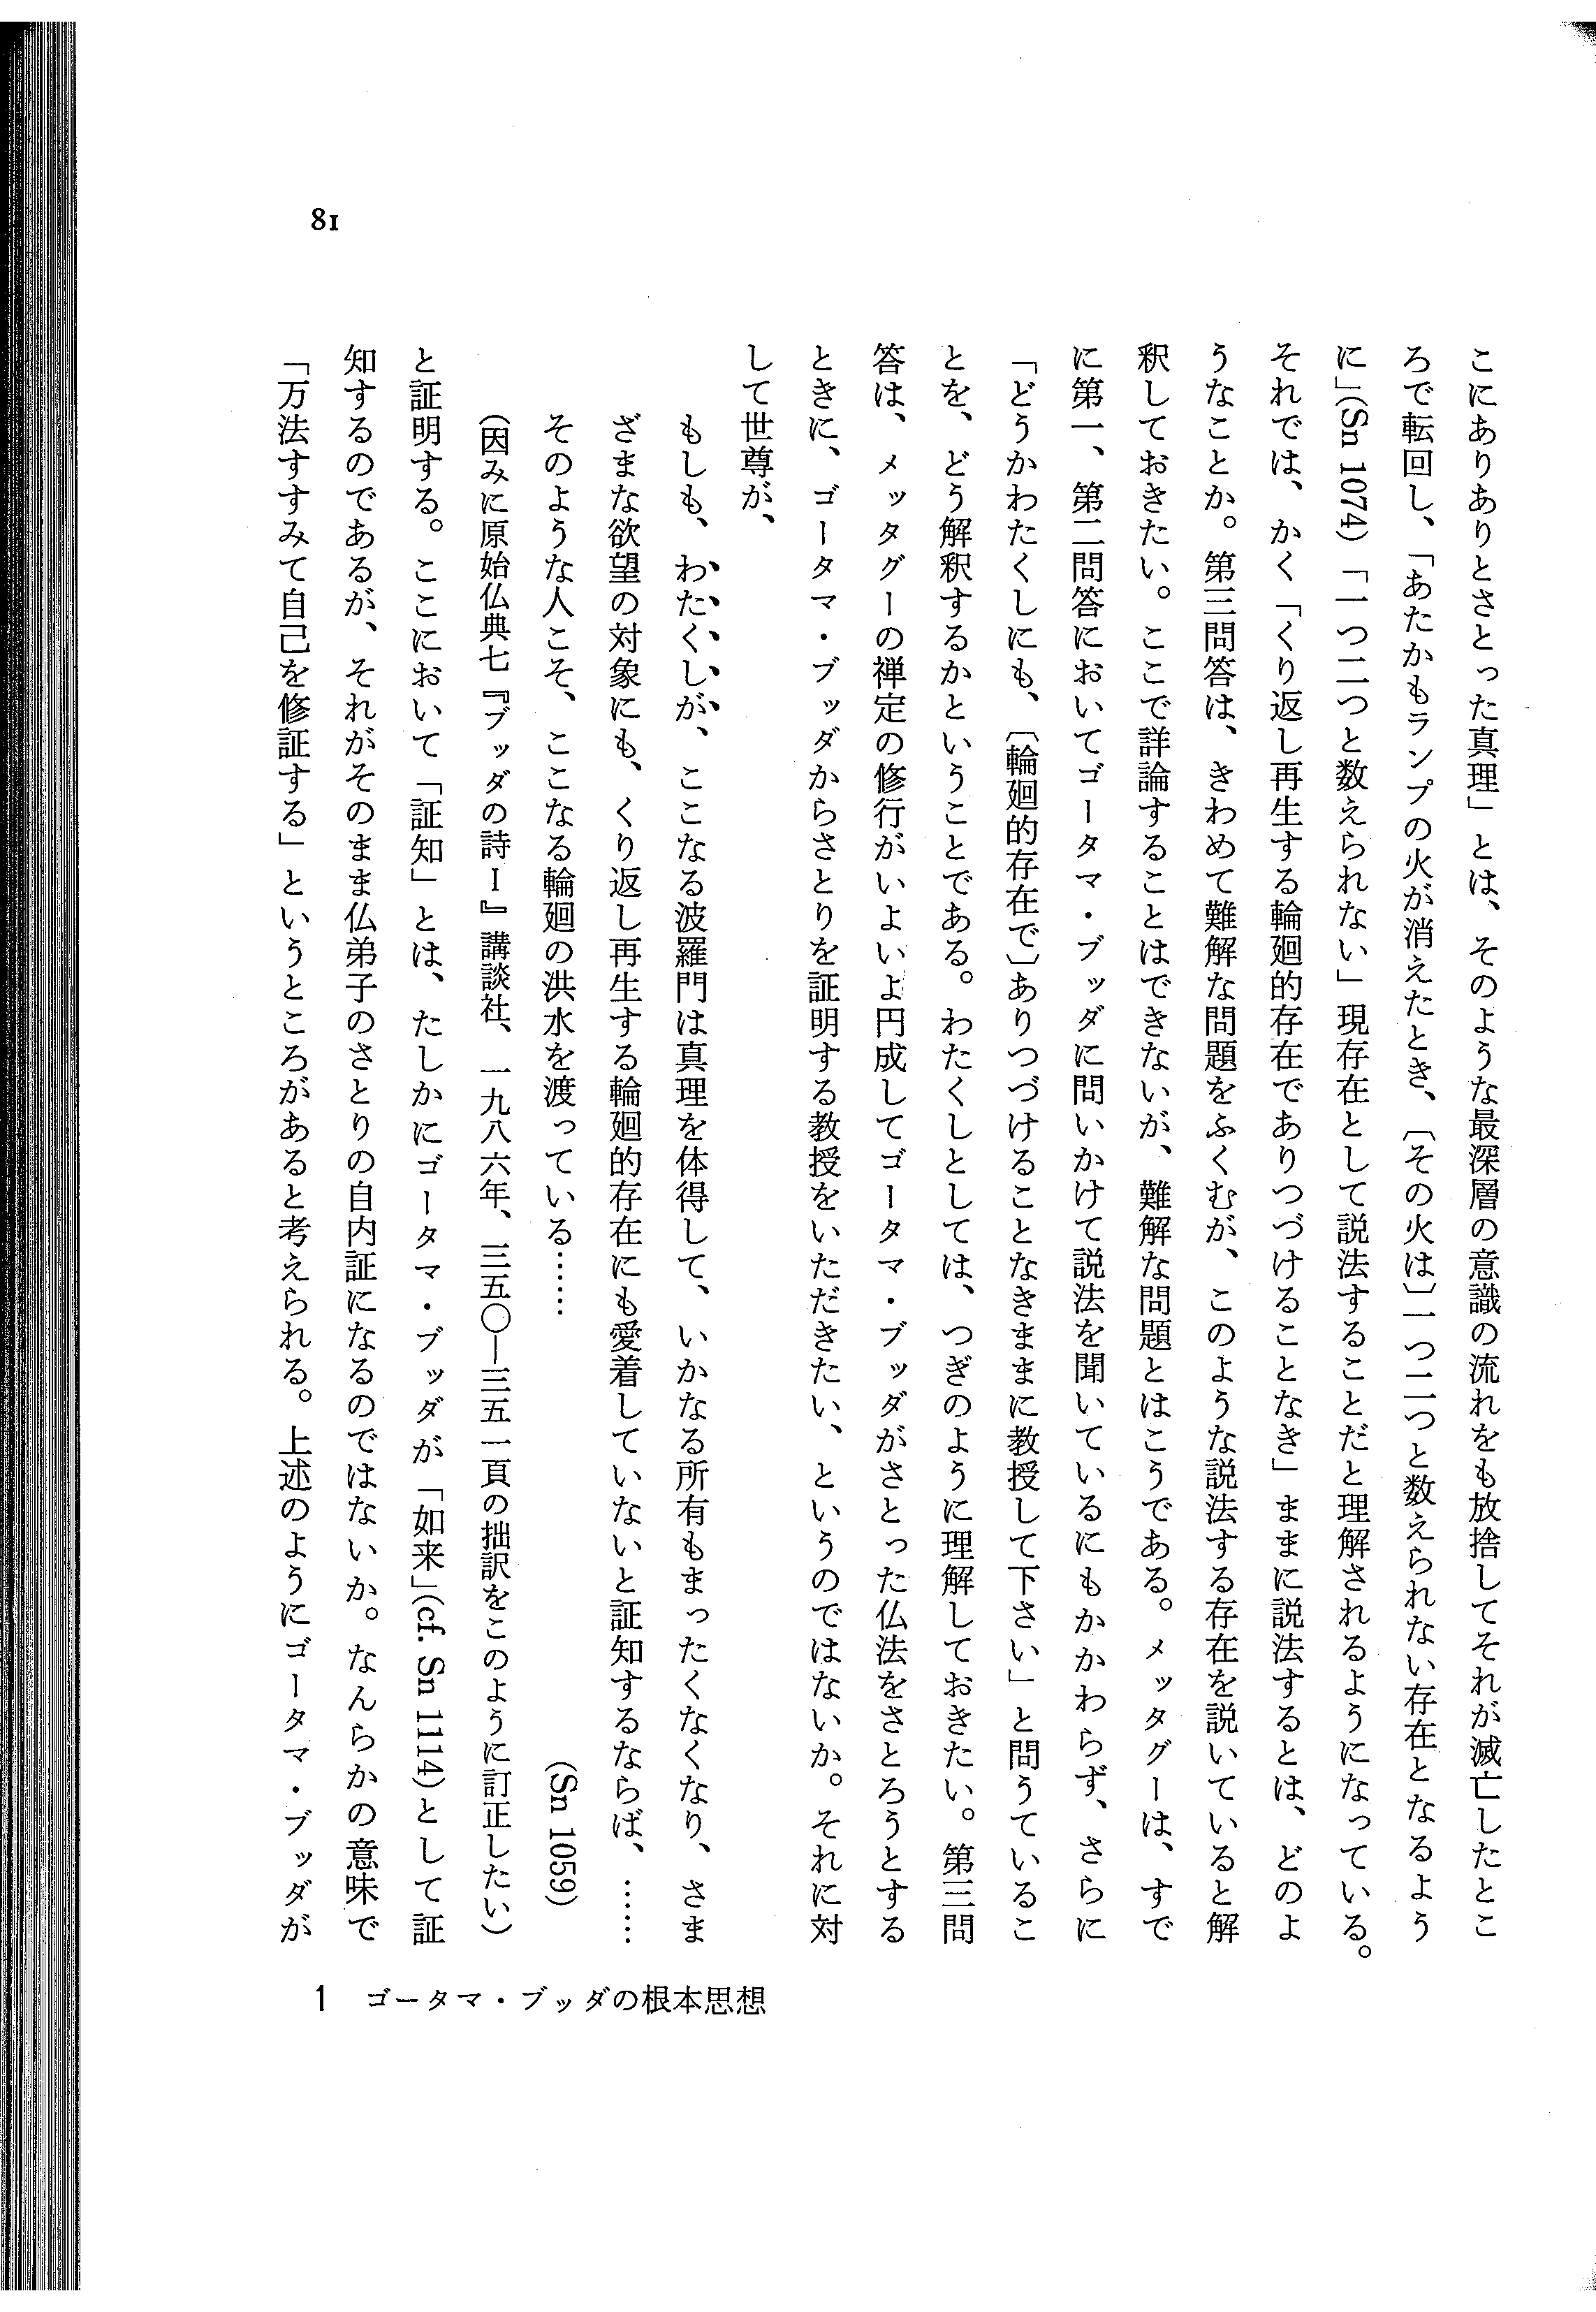 こにありありとさとった真理」とは、そのような最深層の意識の流れをも放捨してそれが滅亡したとこ
ろで転回し、「あたかもランプの火が消えたとき、〔その火は〕一つ二つと数えられない存在となるよう
に」(Sn 1074)「一つ二つと数えられない」現存在として説法することだと理解されるようになっている。
それでは、かく「くり返し再生する輪廻的存在でありつづけることなき」ままに説法するとは、どのよ
うなことか。第三問答は、きわめて難解な問題をふくむが、このような説法する存在を説いていると解
釈しておきたい。ここで詳論することはできないが、難解な問題とはこうである。メッタグーは、すで
に第一、第二問答においてゴータマ・ブッダに問いかけて説法を聞いているにもかかわらず、さらに
「どうかわたくしにも、〔輪廻的存在で〕ありつづけることなきままに教授して下さい」と問うているこ
とを、どう解釈するかということである。わたくしとしては、つぎのように理解しておきたい。第三問
答は、メッタグーの禅定の修行がいよいよ円成してゴータマ・ブッダがさとった仏法をさとろうとする
ときに、ゴータマ・ブッダからさとりを証明する教授をいただきたい、というのではないか。それに対
して世尊が、
もしも、わたくしが、ここなる波羅門は真理を体得して、いかなる所有もまったくなくなり、さま
ざまな欲望の対象にも、くり返し再生する輪廻的存在にも愛着していないと証知するならば、……
そのような人こそ、ここなる輪廻の洪水を渡っている……
(Sn 1059)
(因みに原始仏典七『ブッダの詩Ⅰ』講談社、一九八六年、三五〇―三五一頁の拙訳をこのように訂正したい)
と証明する。ここにおいて「証知」とは、たしかにゴータマ・ブッダが「如来」(cf. Sn 1114)として証
知するのであるが、それがそのまま仏弟子のさとりの自内証になるのではないか。なんらかの意味で
「万法すすみて自己を修証する」というところがあると考えられる。上述のようにゴータマ・ブッダが
1 ゴータマ・ブッダの根本思想
81